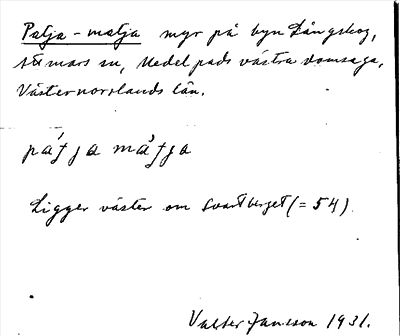 Patja-matja myr på byn Långskog,
Stöde sn, Medelpads västra domsaga,
Västernorrlands län.
pátja màtja
Ligger väster om Svartberget (= 54).
Valter Jansson 1931.